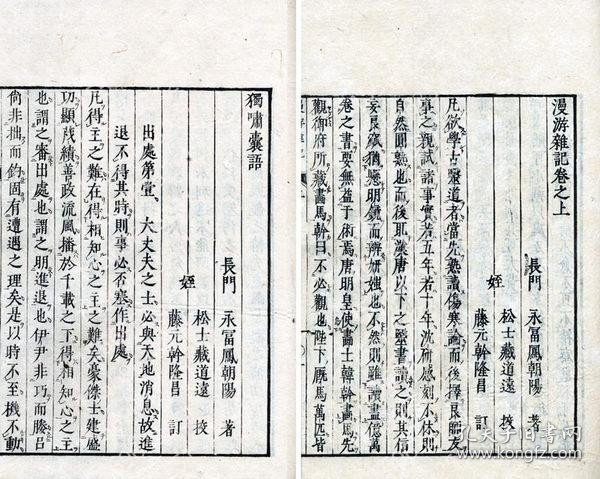 漫游雜記卷之上
長門 永冨鳳朝陽 著
姪 松士藏道遠 挍
藤元幹隆昌 訂
凡欲學古醫道者當先熟讀傷寒論而後擇良師友
事之親試諸事實若五年若十年沈研感刻不休則
自然圓熟也而後耽漢唐以下之醫書讀之則其信
妄良窳猶懸明鏡而辨妍媸也不然則雖讀盡億萬
卷之書要無益于術焉唐明皇使畫士韓幹畫馬先
觀御府所藏畫馬幹曰不必觀也陛下厩馬萬匹皆
獨嘯囊語
長門 永冨鳳朝陽 著
姪 松士藏道遠 挍
藤元幹隆昌 訂
出處第壹 大丈夫之士必與天地消息故進
退不得其時則事必否塞作出處
凡得主之難在得相知心之主之難矣豪傑士建盛
功顯茂績善政流風播於千載之下得相知心之主
也謂之審出處也謂之明進退也伊尹非巧而滕呂
尚非拙而釣固有遭遇之理矣是以時不至機不動
孔夫子旧书网
kongfz.com